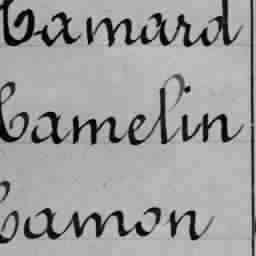 Hamard
Hamelin
Hamon